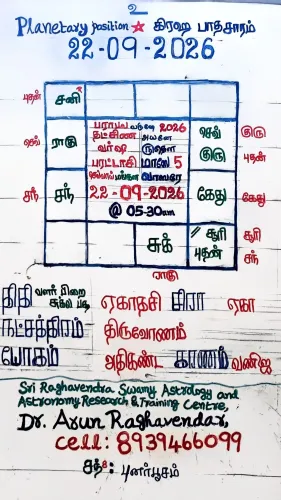 2
Planetary position ☆ கிரஹ பாதசாரம்
22-09-2026
புதன் சனி
பராபவ வருடம் 2026
தட்சிண அயனம்
வர்ஷ ருதௌ
புரட்டாசி மாஸம் 5
வாஸரம்
22-09-2026
@ 05-30am
செவ் ராகு
செவ் குரு
குரு
புதன்
சந் சந்
கேது கேது
சுக்
// சூரி
புதன்
சூரி
சந்
ராகு
திதி வளர் பிறை ஏகாதசி
நட்சத்திரம் திருவோணம்
யோகம் அதிகண்ட கரணம் வணிஜ
Sri Raghavendra Swamy Astrology and
Astronomy Research & Training Centre,
Dr. Arun Raghavendar,
cell: 8939466099
புனர்பூசம்